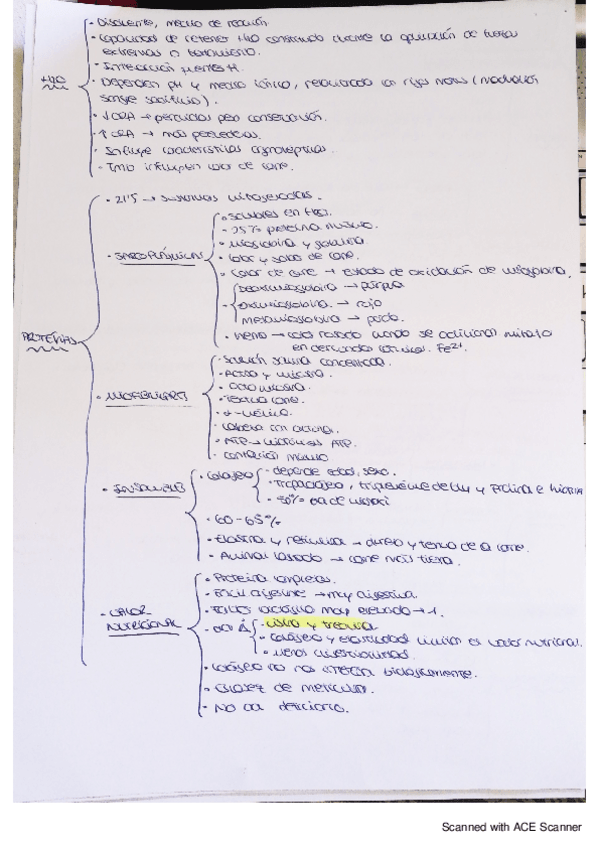 - Disolvente, medio de reacción
- Capacidad de retener H2O constituido durante la aplicación de fuerzas
extremas o tratamiento.
- Interacción fuente H.
H2O
- Dependen pH y medio iónico, relacionado con rigor mortis (
sangre sacrificio).
- ↓CRA → perdidas peso conservación.
- ↑CRA →
- Influye características organolépticas.
- Tmb influyen color de carne.
PROTEÍNAS
- 21'5 → sustancias nitrogenadas.
- SARCOPLÁSMICAS
- Solubles en H2O.
- 35% proteína músculo.
- Mioglobina y
- Color y sabor de carne.
- Color de carne → estado de oxidación de mioglobina.
- Deoximioglobina → púrpura
- Oximioglobina → rojo
- Metamioglobina → pardo.
- Hemo → color rosado cuando se adicionan nitrato
en derivados cárnicos. Fe2+.
- MIOFIBRILARES
- Solución salina concentrada.
- Actina y miosina.
- Actomiosina.
- Textura carne.
- α-hélice.
- Cabeza con actina.
- ATP → hidrólisis ATP.
- Contracción músculo
- INSOLUBLES
- Colágeno
- depende edad, sexo.
- Tropocolágeno, triple hélice de Gly y Prolina e hidroxi
- 30%
- 60-65%
- Elastina y reticulina → dureza y textura de la carne.
- Animal castrado → carne más tierna.
- VALOR
NUTRICIONAL
- Proteína completas.
- Fácil digerible → muy digestiva.
- muy elevado → 1.
- aa
- Lisina y treonina
- Colágeno y elasticidad limitan el valor nutricional.
- Menos digestibilidad.
- Colágeno no nos interesa biológicamente.
- Escasez de metionina.
- No aa deficiario.
Scanned with ACE Scanner